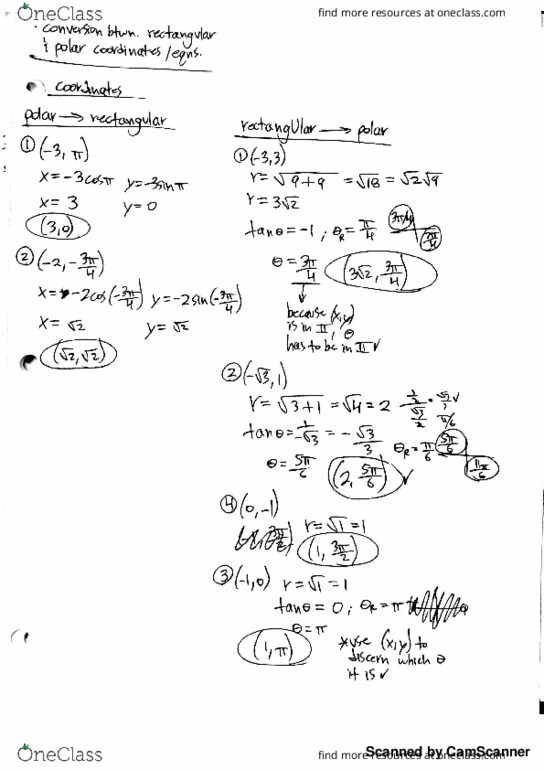 OneClass
find more resources at oneclass.com
· conversion btwn. rectangular
& polar coordinates/eqns.
coordinates
polar → rectangular
① (-3, π)
x = -3cosπ y = -3sinπ
x = 3 y = 0
(3,0)
② (-2, -3π/4)
x = -2cos(-3π/4) y = -2sin(-3π/4)
x = √2 y = √2
(√2, √2)
rectangular → polar
① (-3,3)
r = √9+9 = √18 = √2√9
r = 3√2
tanθ = -1 ; θR = π/4 3π/4
7π/4
θ = 3π/4 (3√2, 3π/4)
because (x,y)
is in II, θ
has to be in II ✓
② (-√3, 1)
r = √3+1 = √4 = 2
tanθ = 1/-√3 = -√3/3 θR = π/6 5π/6
11π/6
θ = 5π/6 (2, 5π/6) ✓
④ (0, -1)
r = √1 = 1
(1, 3π/2)
③ (-1,0) r = √1 = 1
tanθ = 0; θR = π
θ = π
(1, π)
*use (x,y) to
discern which θ
it is ✓
OneClass
find more resources at oneclass.com
Scanned by CamScanner